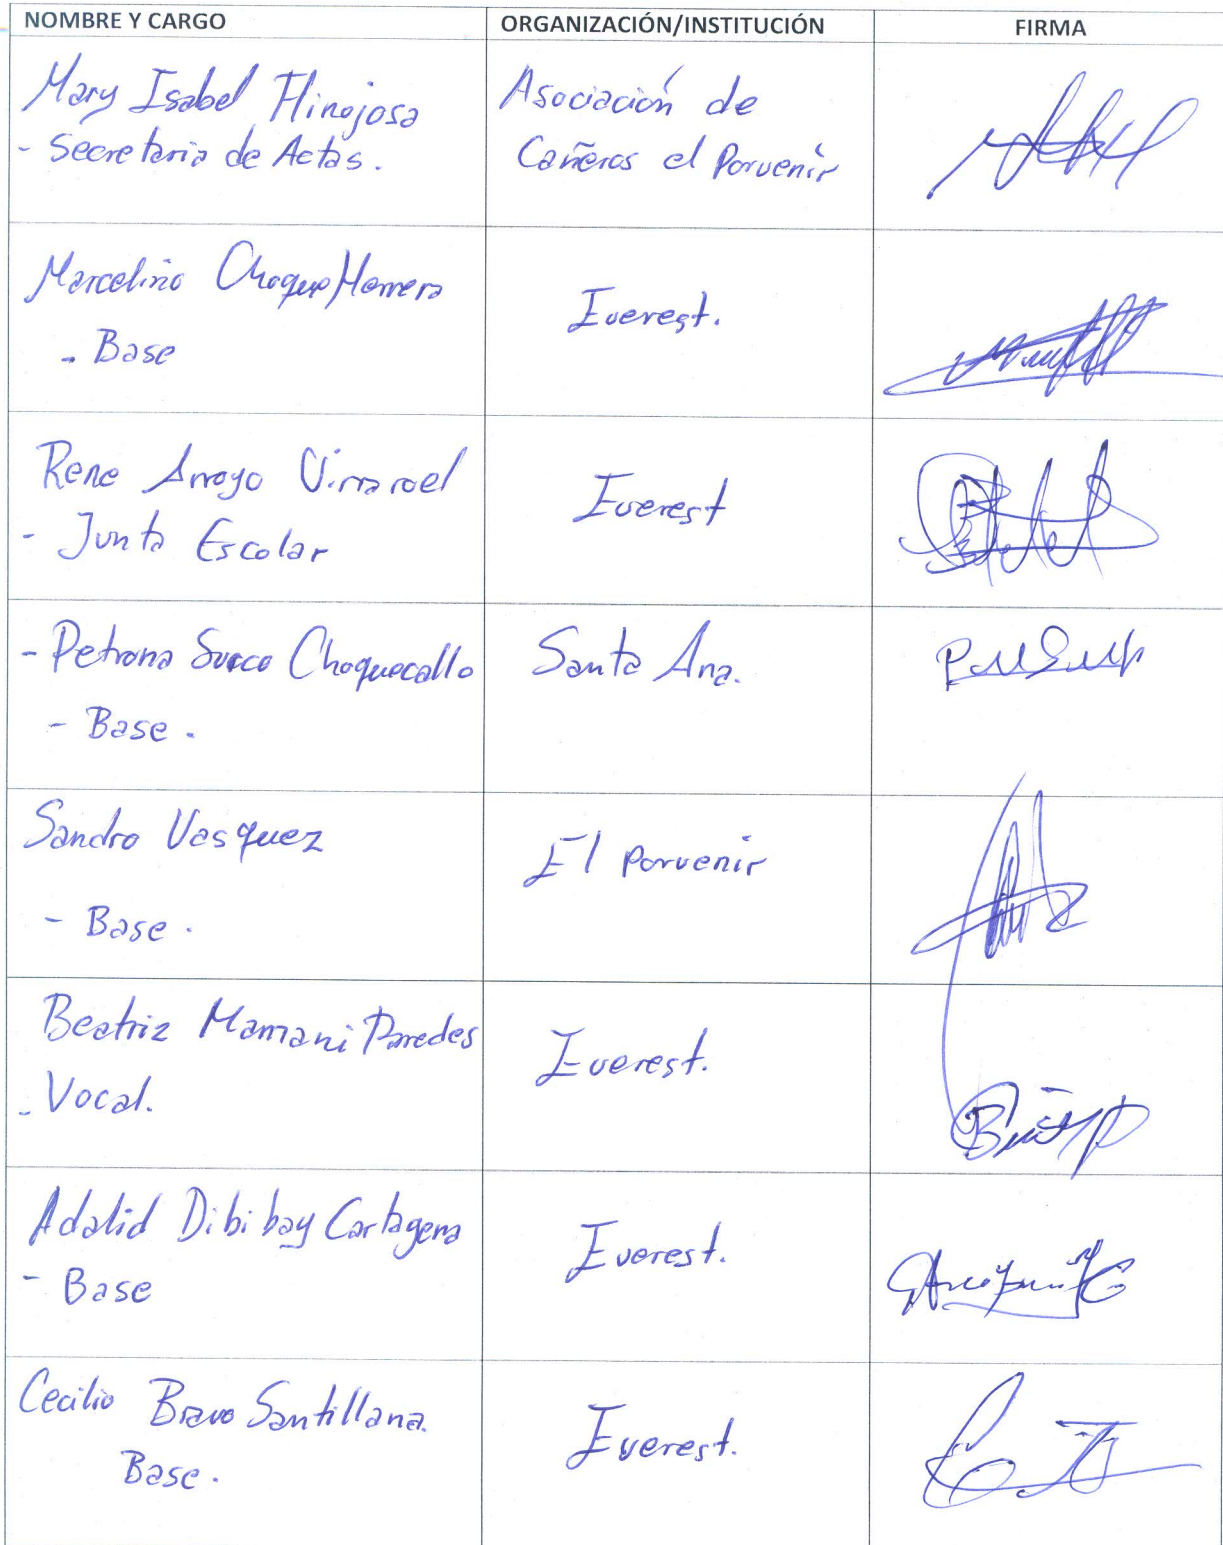 NOMBRE Y CARGO ORGANIZACIÓN/INSTITUCIÓN FIRMA
Mary Isabel Hinojosa
- Secretaria de Actas.
Asociación de
Cañeros el Porvenir
Marcelino Choque Herrera
- Base
Everest.
Rene Arroyo Virraroel
- Junta Escolar
Everest
- Petrona Surco Choquecallo
- Base.
Santa Ana.
Sandro Vasquez
- Base.
El Porvenir
Beatriz Mamani Paredes
- Vocal.
Everest.
Adalid Dibibay Cartagena
- Base
Everest.
Cecilio Bravo Santillana.
Base.
Everest.